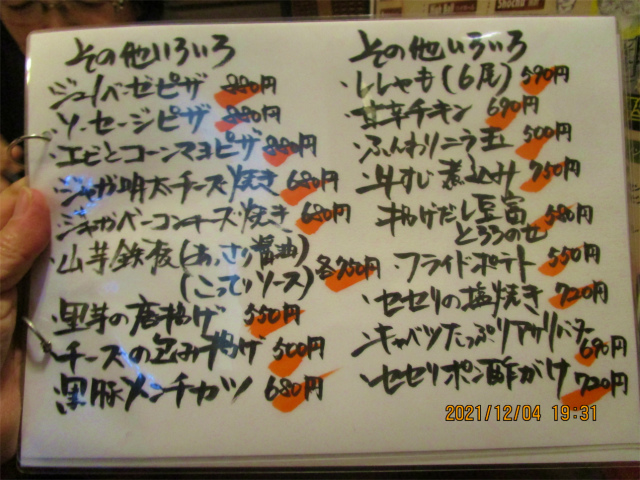 その他いろいろ
ジェノベーゼピザ 880円
ソーセージピザ 880円
・エビとコーンマヨピザ 880円
・ジャガ明太チーズ焼き 680円
・ジャガベーコンチーズ焼き 680円
・山芋鉄板(あっさり醤油)
(こってりソース) 各750円
・里芋の唐揚げ 550円
・チーズの包み揚げ 500円
・黒豚メンチカツ 680円
その他いろいろ
・ししゃも(6尾) 590円
・甘辛チキン 690円
・ふんわりニラ玉 500円
・牛すじ煮込み 750円
・揚げだし豆富 580円
とろろのせ
・フライドポテト 550円
・セセリの塩焼き 720円
・キャベツたっぷりアサリバター
690円
・セセリポン酢がけ 720円
2021/12/04 19:31